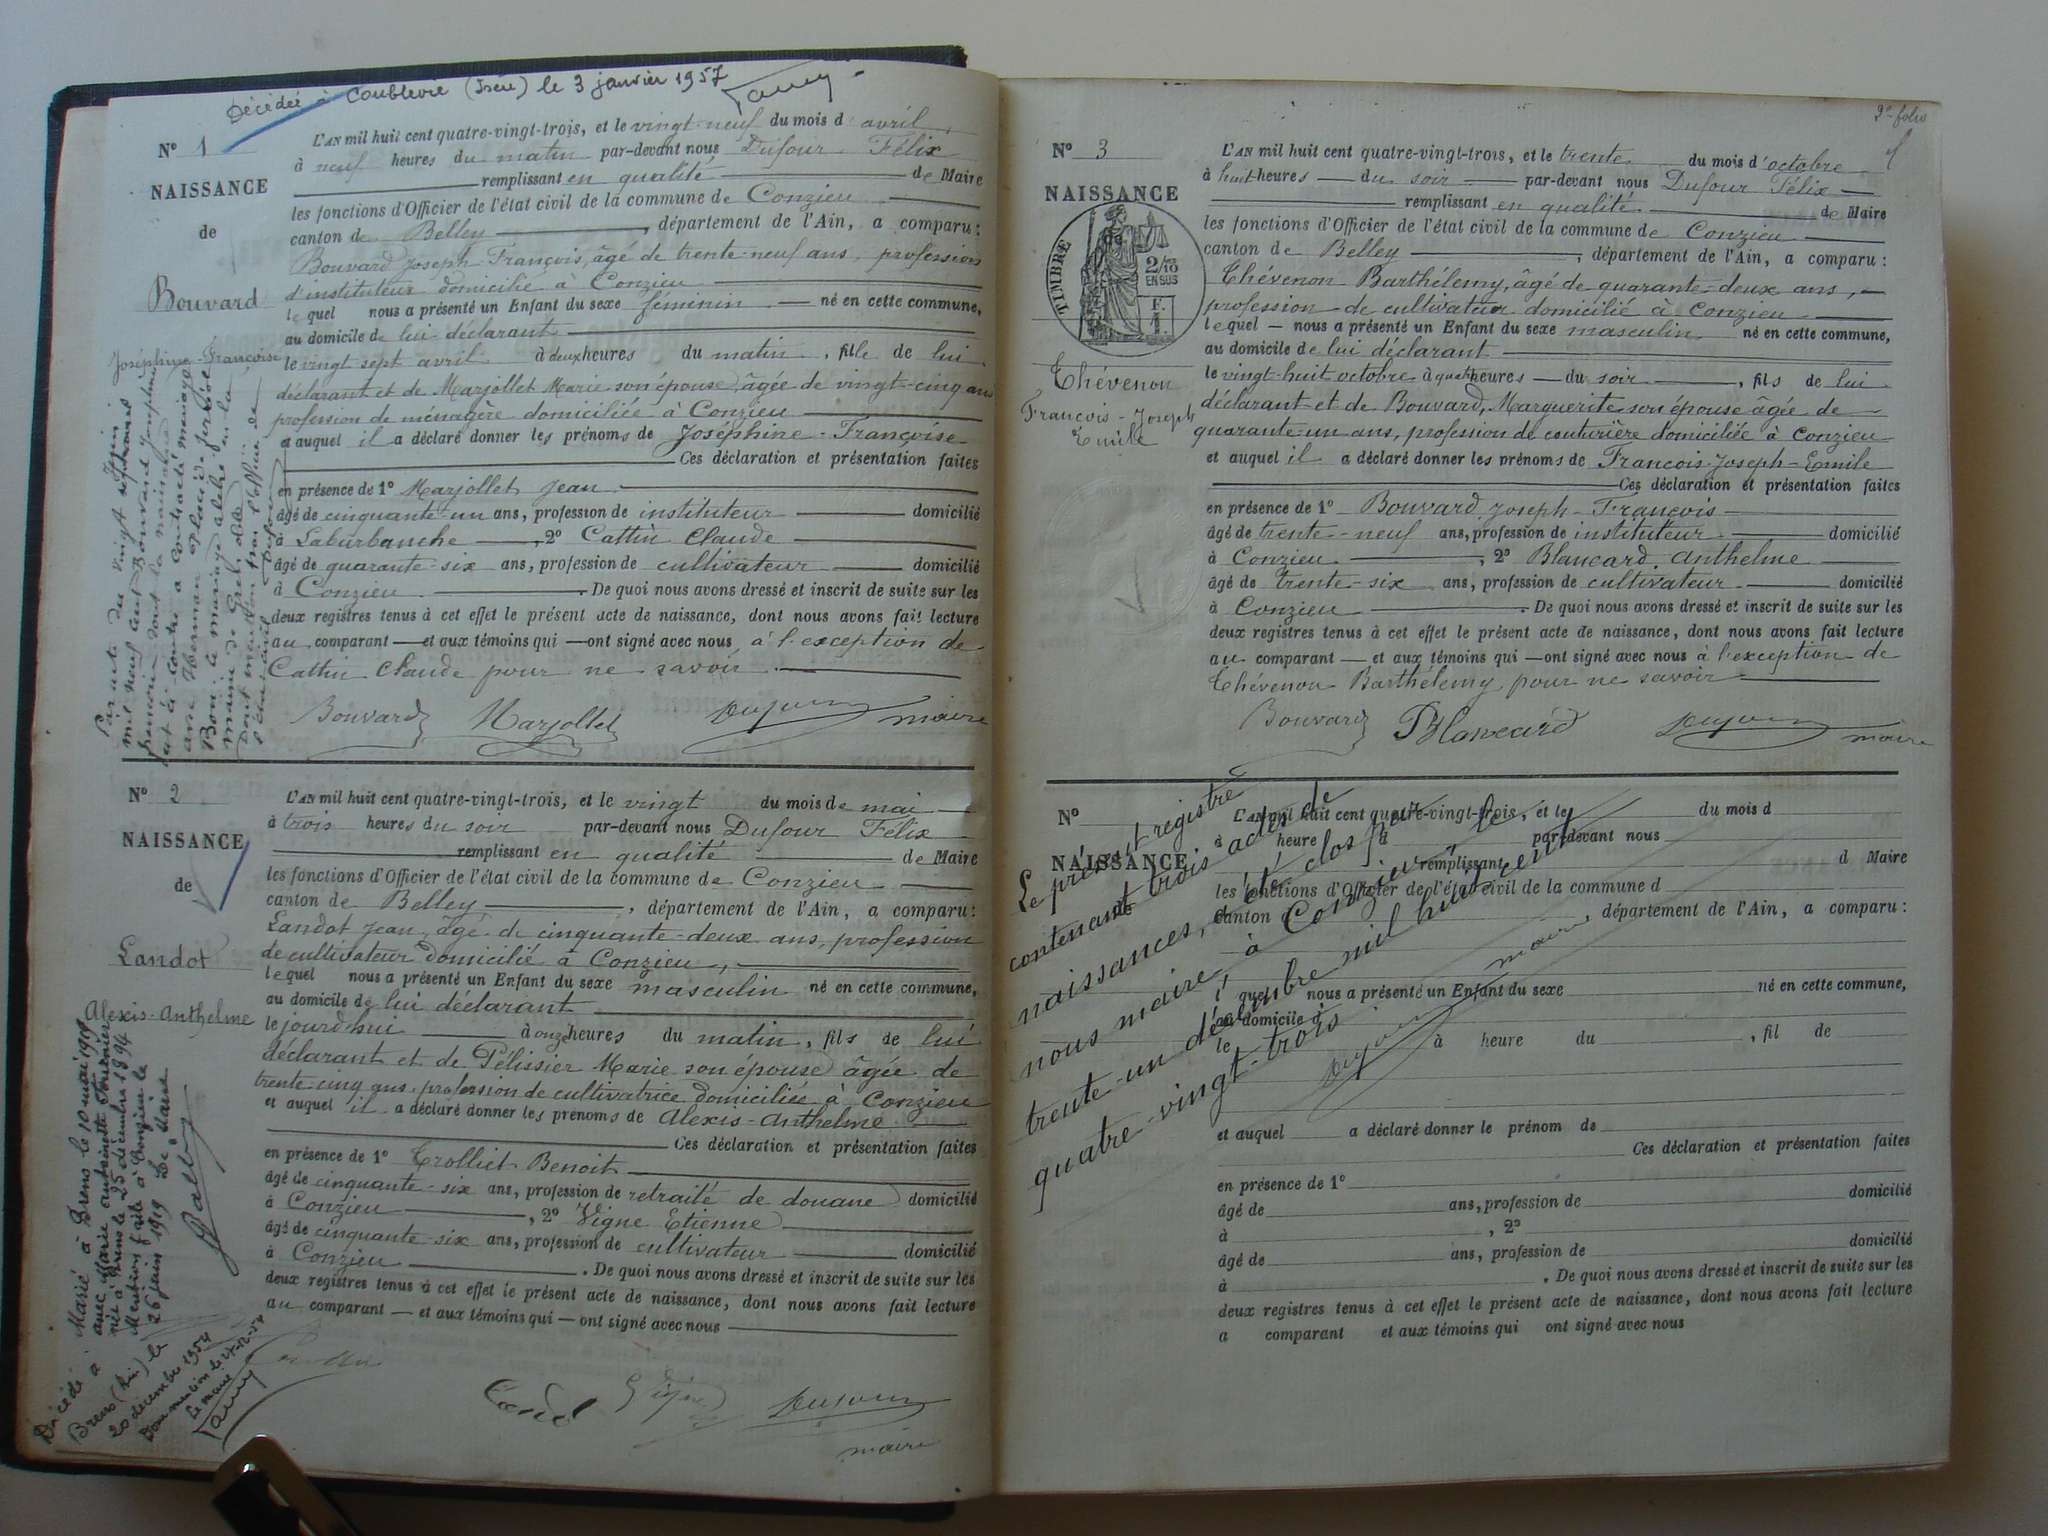 Décédée à Coublevie (Isère) le 3 janvier 1957
N° 1
NAISSANCE
de
Bouvard
Joséphine-Françoise
L'AN mil huit cent quatre-vingt-trois, et le vingt-neuf du mois d avril
à neuf heures du matin par-devant nous Dufour Félix
remplissant en qualité de Maire
les fonctions d'Officier de l'état civil de la commune de Conzieu
canton de Belley, département de l'Ain, a comparu :
Bouvard Joseph-François, âgé de trente-neuf ans, profession
d'instituteur domicilié à Conzieu
le quel nous a présenté un Enfant du sexe féminin né en cette commune,
au domicile de lui déclarant
le vingt sept avril à deux heures du matin, fille de lui
déclarant et de Marjollet Marie son épouse, âgée de vingt-cinq ans
profession de ménagère domiciliée à Conzieu
et auquel il a déclaré donner les prénoms de Joséphine-Françoise
Ces déclaration et présentation faites
en présence de 1° Marjollet Jean
âgé de cinquante-un ans, profession de instituteur domicilié
à Laburbanche, 2° Cattin Claude
âgé de quarante-six ans, profession de cultivateur domicilié
à Conzieu. De quoi nous avons dressé et inscrit de suite sur les
deux registres tenus à cet effet le présent acte de naissance, dont nous avons fait lecture
au comparant et aux témoins qui ont signé avec nous à l'exception de
Cattin Claude pour ne savoir
Bouvard Marjollet Dufour maire
Par acte du vingt
mil neuf cent Bouvard Joséphine
françoise dont la naissance
est ci contre a contracté mariage
N° 2
NAISSANCE
de
Landot
Alexis-Anthelme
L'AN mil huit cent quatre-vingt-trois, et le vingt du mois de mai
à trois heures du soir par-devant nous Dufour Félix
remplissant en qualité de Maire
les fonctions d'Officier de l'état civil de la commune de Conzieu
canton de Belley, département de l'Ain, a comparu :
Landot Jean, âgé de cinquante-deux ans, profession
de cultivateur domicilié à Conzieu,
le quel nous a présenté un Enfant du sexe masculin né en cette commune,
au domicile de lui déclarant
le jourd'hui à onze heures du matin, fils de lui
déclarant et de Pélissier Marie son épouse âgée de
trente-cinq ans, profession de cultivatrice domiciliée à Conzieu
et auquel il a déclaré donner les prénoms de Alexis-Anthelme
Ces déclaration et présentation faites
en présence de 1° Trolliet Benoit
âgé de cinquante-six ans, profession de retraité de douane domicilié
à Conzieu, 2° Vigne Etienne
âgé de cinquante-six ans, profession de cultivateur domicilié
à Conzieu. De quoi nous avons dressé et inscrit de suite sur les
deux registres tenus à cet effet le présent acte de naissance, dont nous avons fait lecture
au comparant et aux témoins qui ont signé avec nous
Dufour
maire
Marié à Brens le 10 mai 1919
avec Marie Antoinette Fournier
née à Brens le 25 décembre 1894
Mention faite à Conzieu le
26 juin 1919 Le Maire
Décédé à
Brens (Ain) le
20 décembre 1954
Dont mention le 27-12-54
Le maire
2e folio
N° 3
NAISSANCE
de
TIMBRE
2/10
EN SUS
F.
1.
Thévenon
François-Joseph
Emile
L'AN mil huit cent quatre-vingt-trois, et le trente du mois d'octobre
à huit heures du soir par-devant nous Dufour Félix
remplissant en qualité de Maire
les fonctions d'Officier de l'état civil de la commune de Conzieu
canton de Belley, département de l'Ain, a comparu :
Thévenon Barthélemy, âgé de quarante-deux ans,
profession de cultivateur domicilié à Conzieu
le quel nous a présenté un Enfant du sexe masculin né en cette commune,
au domicile de lui déclarant
le vingt-huit octobre à quatre heures du soir, fils de lui
déclarant et de Bouvard, Marguerite son épouse âgée de
quarante-un ans, profession de couturière domiciliée à Conzieu
et auquel il a déclaré donner les prénoms de Francois-Joseph-Emile
Ces déclaration et présentation faites
en présence de 1° Bouvard Joseph-François
âgé de trente-neuf ans, profession de instituteur domicilié
à Conzieu, 2° Blancard Anthelme
âgé de trente-six ans, profession de cultivateur domicilié
à Conzieu. De quoi nous avons dressé et inscrit de suite sur les
deux registres tenus à cet effet le présent acte de naissance, dont nous avons fait lecture
au comparant et aux témoins qui ont signé avec nous à l'exception de
Thévenon Barthélemy pour ne savoir
Bouvard Blancard Dufour maire
N°
NAISSANCE
de
L'AN mil huit cent quatre-vingt-trois, et le du mois d
à heure d par-devant nous
remplissant d Maire
les fonctions d'Officier de l'état civil de la commune d
canton d, département de l'Ain, a comparu :
l quel nous a présenté un Enfant du sexe né en cette commune,
au domicile d
le à heure du, fil de
et auquel a déclaré donner le prénom de
Ces déclaration et présentation faites
en présence de 1°
âgé de ans, profession de domicilié
à, 2°
âgé de ans, profession de domicilié
à. De quoi nous avons dressé et inscrit de suite sur les
deux registres tenus à cet effet le présent acte de naissance, dont nous avons fait lecture
a comparant et aux témoins qui ont signé avec nous
Le présent registre
contenant trois actes de
naissances, a été clos par
nous maire, à Conzieu le
trente-un décembre mil huit cent
quatre-vingt-trois
Dufour maire